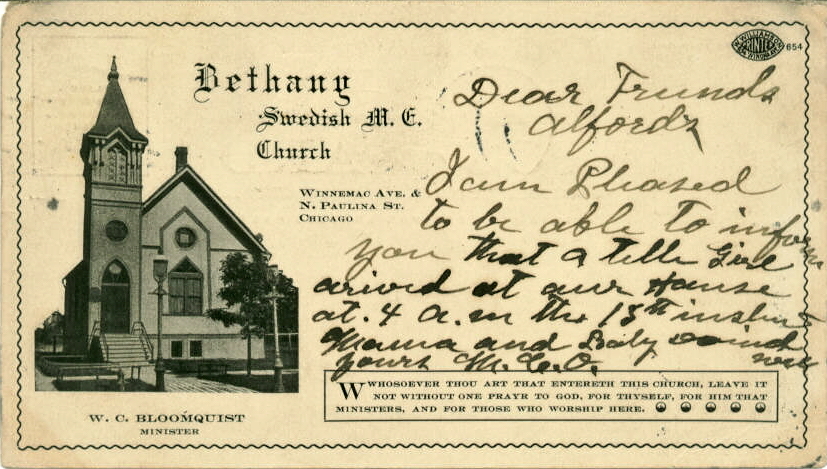 Bethany
Swedish M. E.
Church
Winnemac Ave. &
N. Paulina St.
Chicago
WILLIAMSON
PRINTER
654
Dear Frunds
Alfords
I am Pleased
to be able to inform
you that a little Girl
arived at our House
at. 4 a.m the 15th instent
Mama and Baby doind well
yours M. C. O.
WHOSOEVER THOU ART THAT ENTERETH THIS CHURCH, LEAVE IT
NOT WITHOUT ONE PRAYR TO GOD, FOR THYSELF, FOR HIM THAT
MINISTERS, AND FOR THOSE WHO WORSHIP HERE.
W. C. BLOOMQUIST
MINISTER